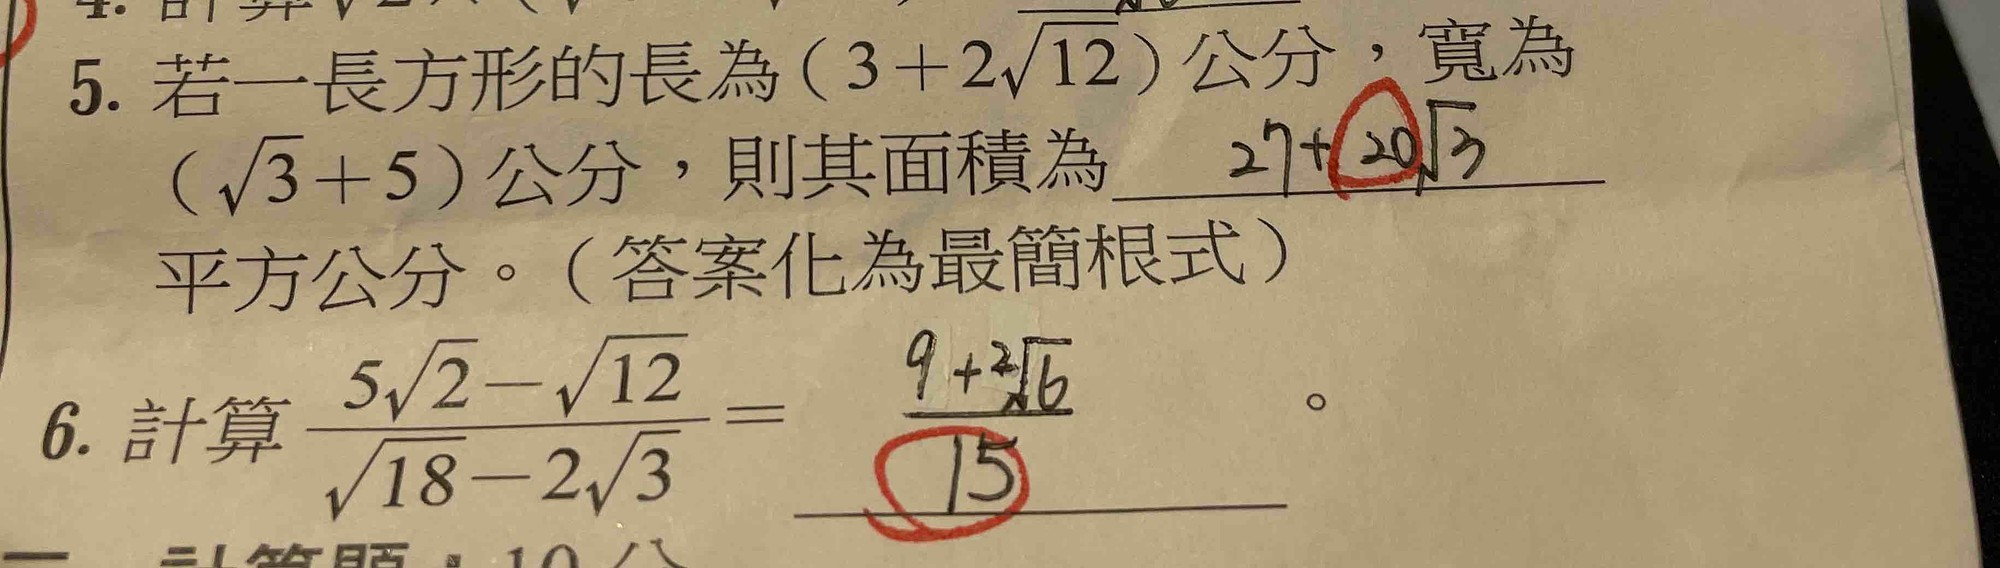 5. 若一長方形的長為（3＋2√12）公分，寬為
（√3＋5）公分，則其面積為 27+20√3
平方公分。（答案化為最簡根式）
6. 計算 (5√2－√12)/(√18－2√3)＝ (9+2√6)/15 。